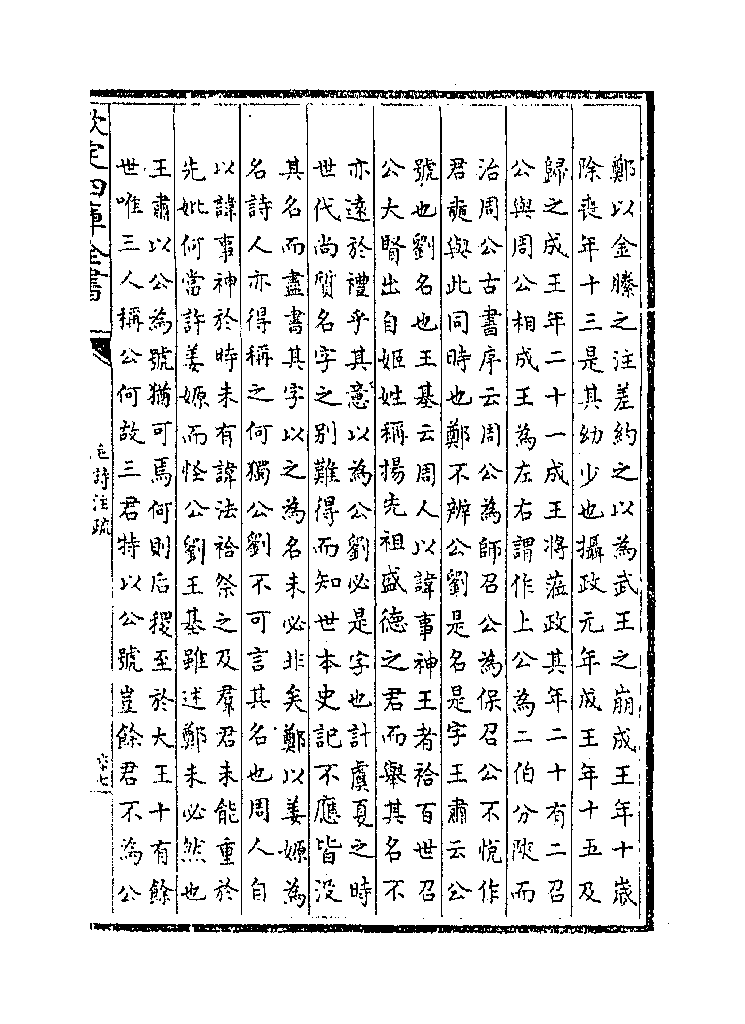 鄭以金縢之注差約之以為武王之崩成王年十歲
除喪年十三是其幼少也攝政元年成王年十五及
歸之成王年二十一成王將蒞政其年二十有二召
公與周公相成王為左右謂作上公為二伯分陜而
治周公古書序云周公為師召公為保召公不悅作
君奭與此同時也鄭不辨公劉是名是字王肅云公
號也劉名也王基云周人以諱事神王者祫百世召
公大賢出自姬姓稱揚先祖盛德之君而舉其名不
亦遠於禮乎其意以為公劉必是字也計虞夏之時
世代尚質名字之別難得而知世本史記不應皆沒
其名而盡書其字以之為名未必非矣鄭以姜嫄為
名詩人亦得稱之何獨公劉不可言其名也周人自
以諱事神於時未有諱法祫祭之及羣君未能重於
先妣何當許姜嫄而怪公劉王基雖述鄭未必然也
王肅以公為號猶可焉何則后稷至於大王十有餘
世唯三人稱公何故三君特以公號豈餘君不為公
欽定四庫全書
毛詩注疏
六十七